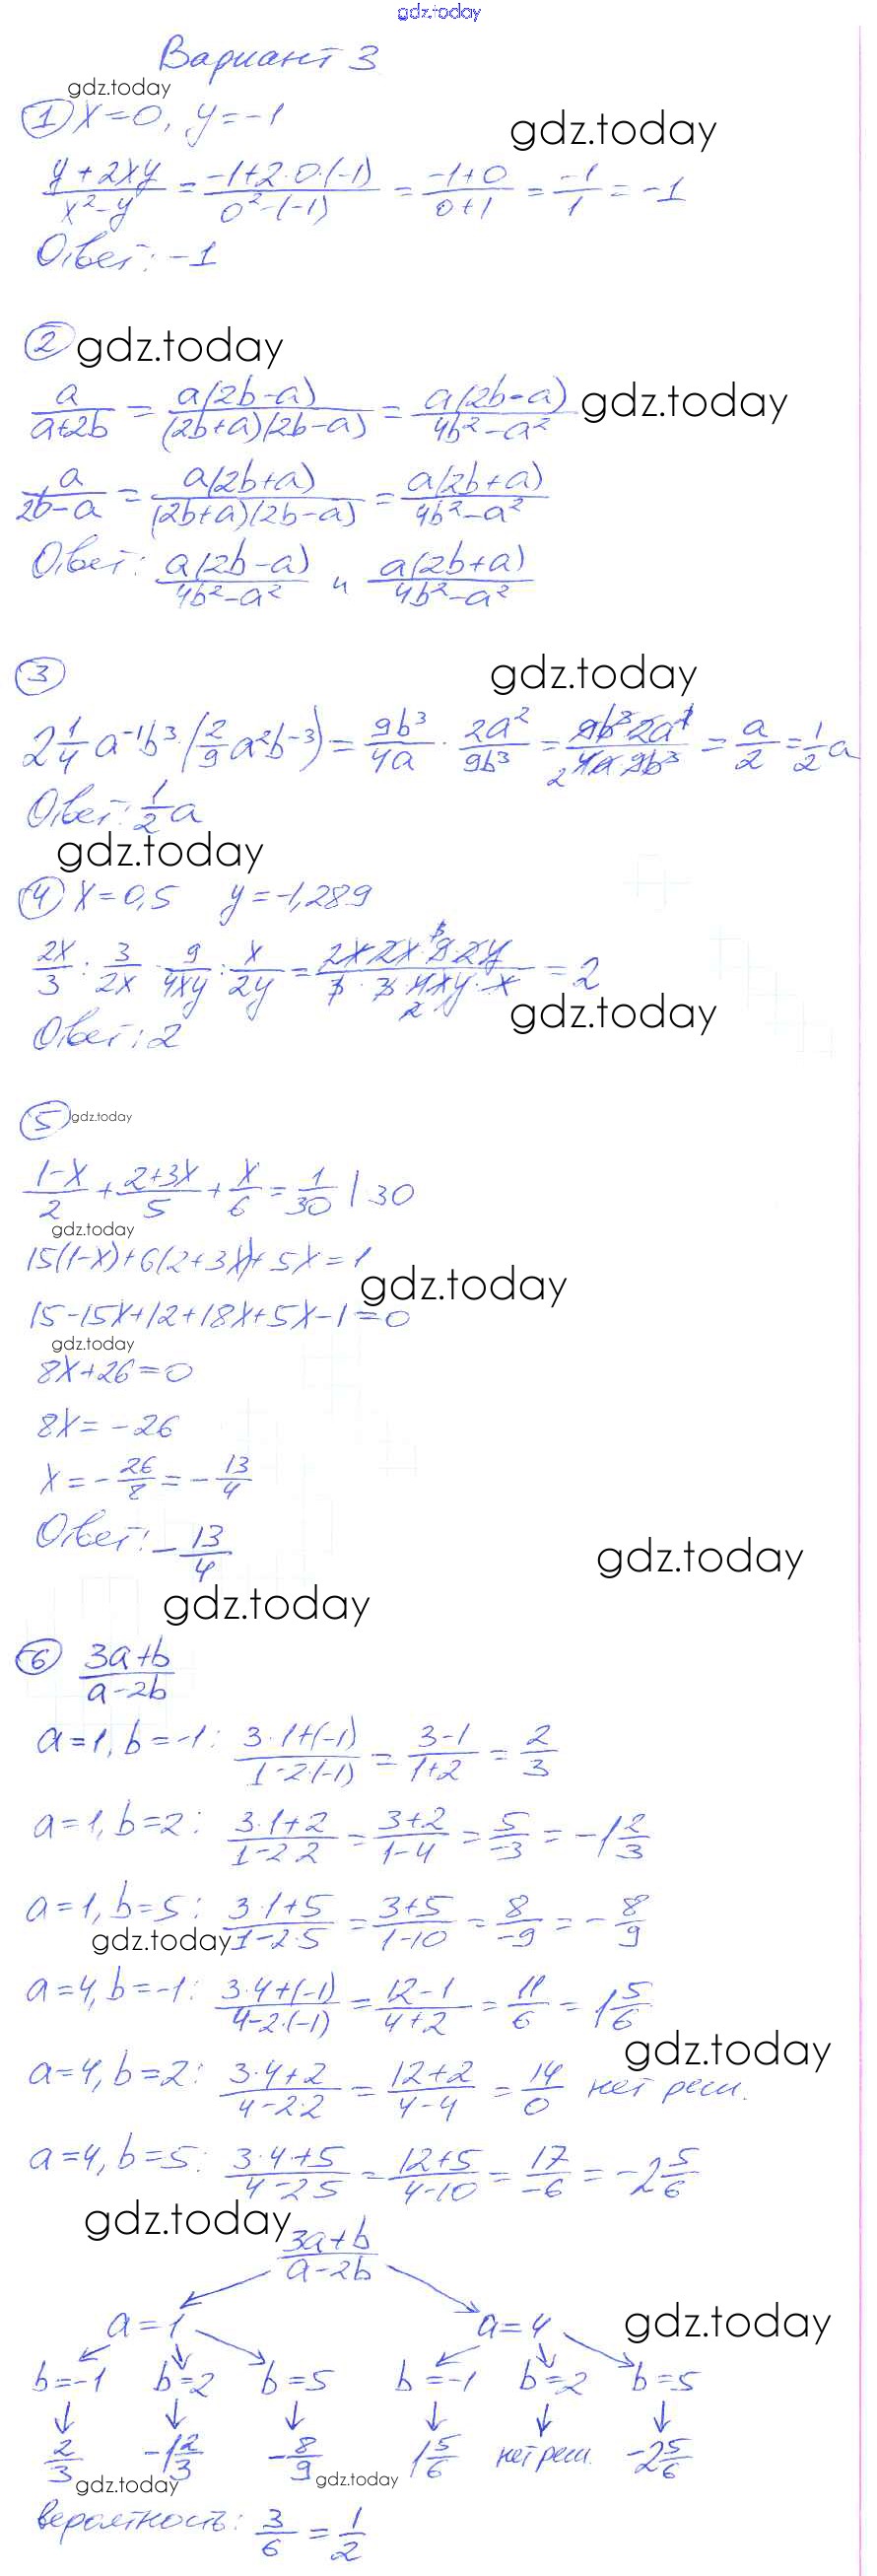 gdz.today
Вариант 3
gdz.today
① x=0, y=-1
gdz.today
(y+2xy)/(x²-y) = (-1+2·0·(-1))/(0²-(-1)) = (-1+0)/(0+1) = (-1)/1 = -1
Ответ: -1
② gdz.today
a/(a+2b) = a(2b-a)/((2b+a)(2b-a)) = a(2b-a)/(4b²-a²) gdz.today
a/(2b-a) = a(2b+a)/((2b+a)(2b-a)) = a(2b+a)/(4b²-a²)
Ответ: a(2b-a)/(4b²-a²) и a(2b+a)/(4b²-a²)
③ gdz.today
2 1/4 a⁻¹b³·(2/9 a²b⁻³) = 9b³/4a · 2a²/9b³ = = a/2 = 1/2 a
Ответ: 1/2 a
gdz.today
④ x=0,5 y=-1,289
2x/3 : 3/2x · 9/4xy : x/2y = (2x·2x·9·2y)/(3·3·4xy·x) = 2
gdz.today
Ответ: 2
⑤ gdz.today
(1-x)/2 + (2+3x)/5 + x/6 = 1/30 | 30
gdz.today
15(1-x)+6(2+3x)+5x=1
gdz.today
15-15x+12+18x+5x-1=0
gdz.today
8x+26=0
8x=-26
x=-26/8=-13/4
Ответ: -13/4
gdz.today
gdz.today
⑥ (3a+b)/(a-2b)
a=1, b=-1: (3·1+(-1))/(1-2·(-1)) = (3-1)/(1+2) = 2/3
a=1, b=2: (3·1+2)/(1-2·2) = (3+2)/(1-4) = 5/-3 = -1 2/3
a=1, b=5: (3·1+5)/(1-2·5) = (3+5)/(1-10) = 8/-9 = -8/9
gdz.today
a=4, b=-1: (3·4+(-1))/(4-2·(-1)) = (12-1)/(4+2) = 11/6 = 1 5/6
gdz.today
a=4, b=2: (3·4+2)/(4-2·2) = (12+2)/(4-4) = 14/0 нет реш.
a=4, b=5: (3·4+5)/(4-2·5) = (12+5)/(4-10) = 17/-6 = -2 5/6
gdz.today
(3a+b)/(a-2b)
a=1 a=4 gdz.today
b=-1 b=2 b=5 b=-1 b=2 b=5
2/3 -1 2/3 -8/9 1 5/6 нет реш. -2 5/6
gdz.today gdz.today
вероятность: 3/6 = 1/2